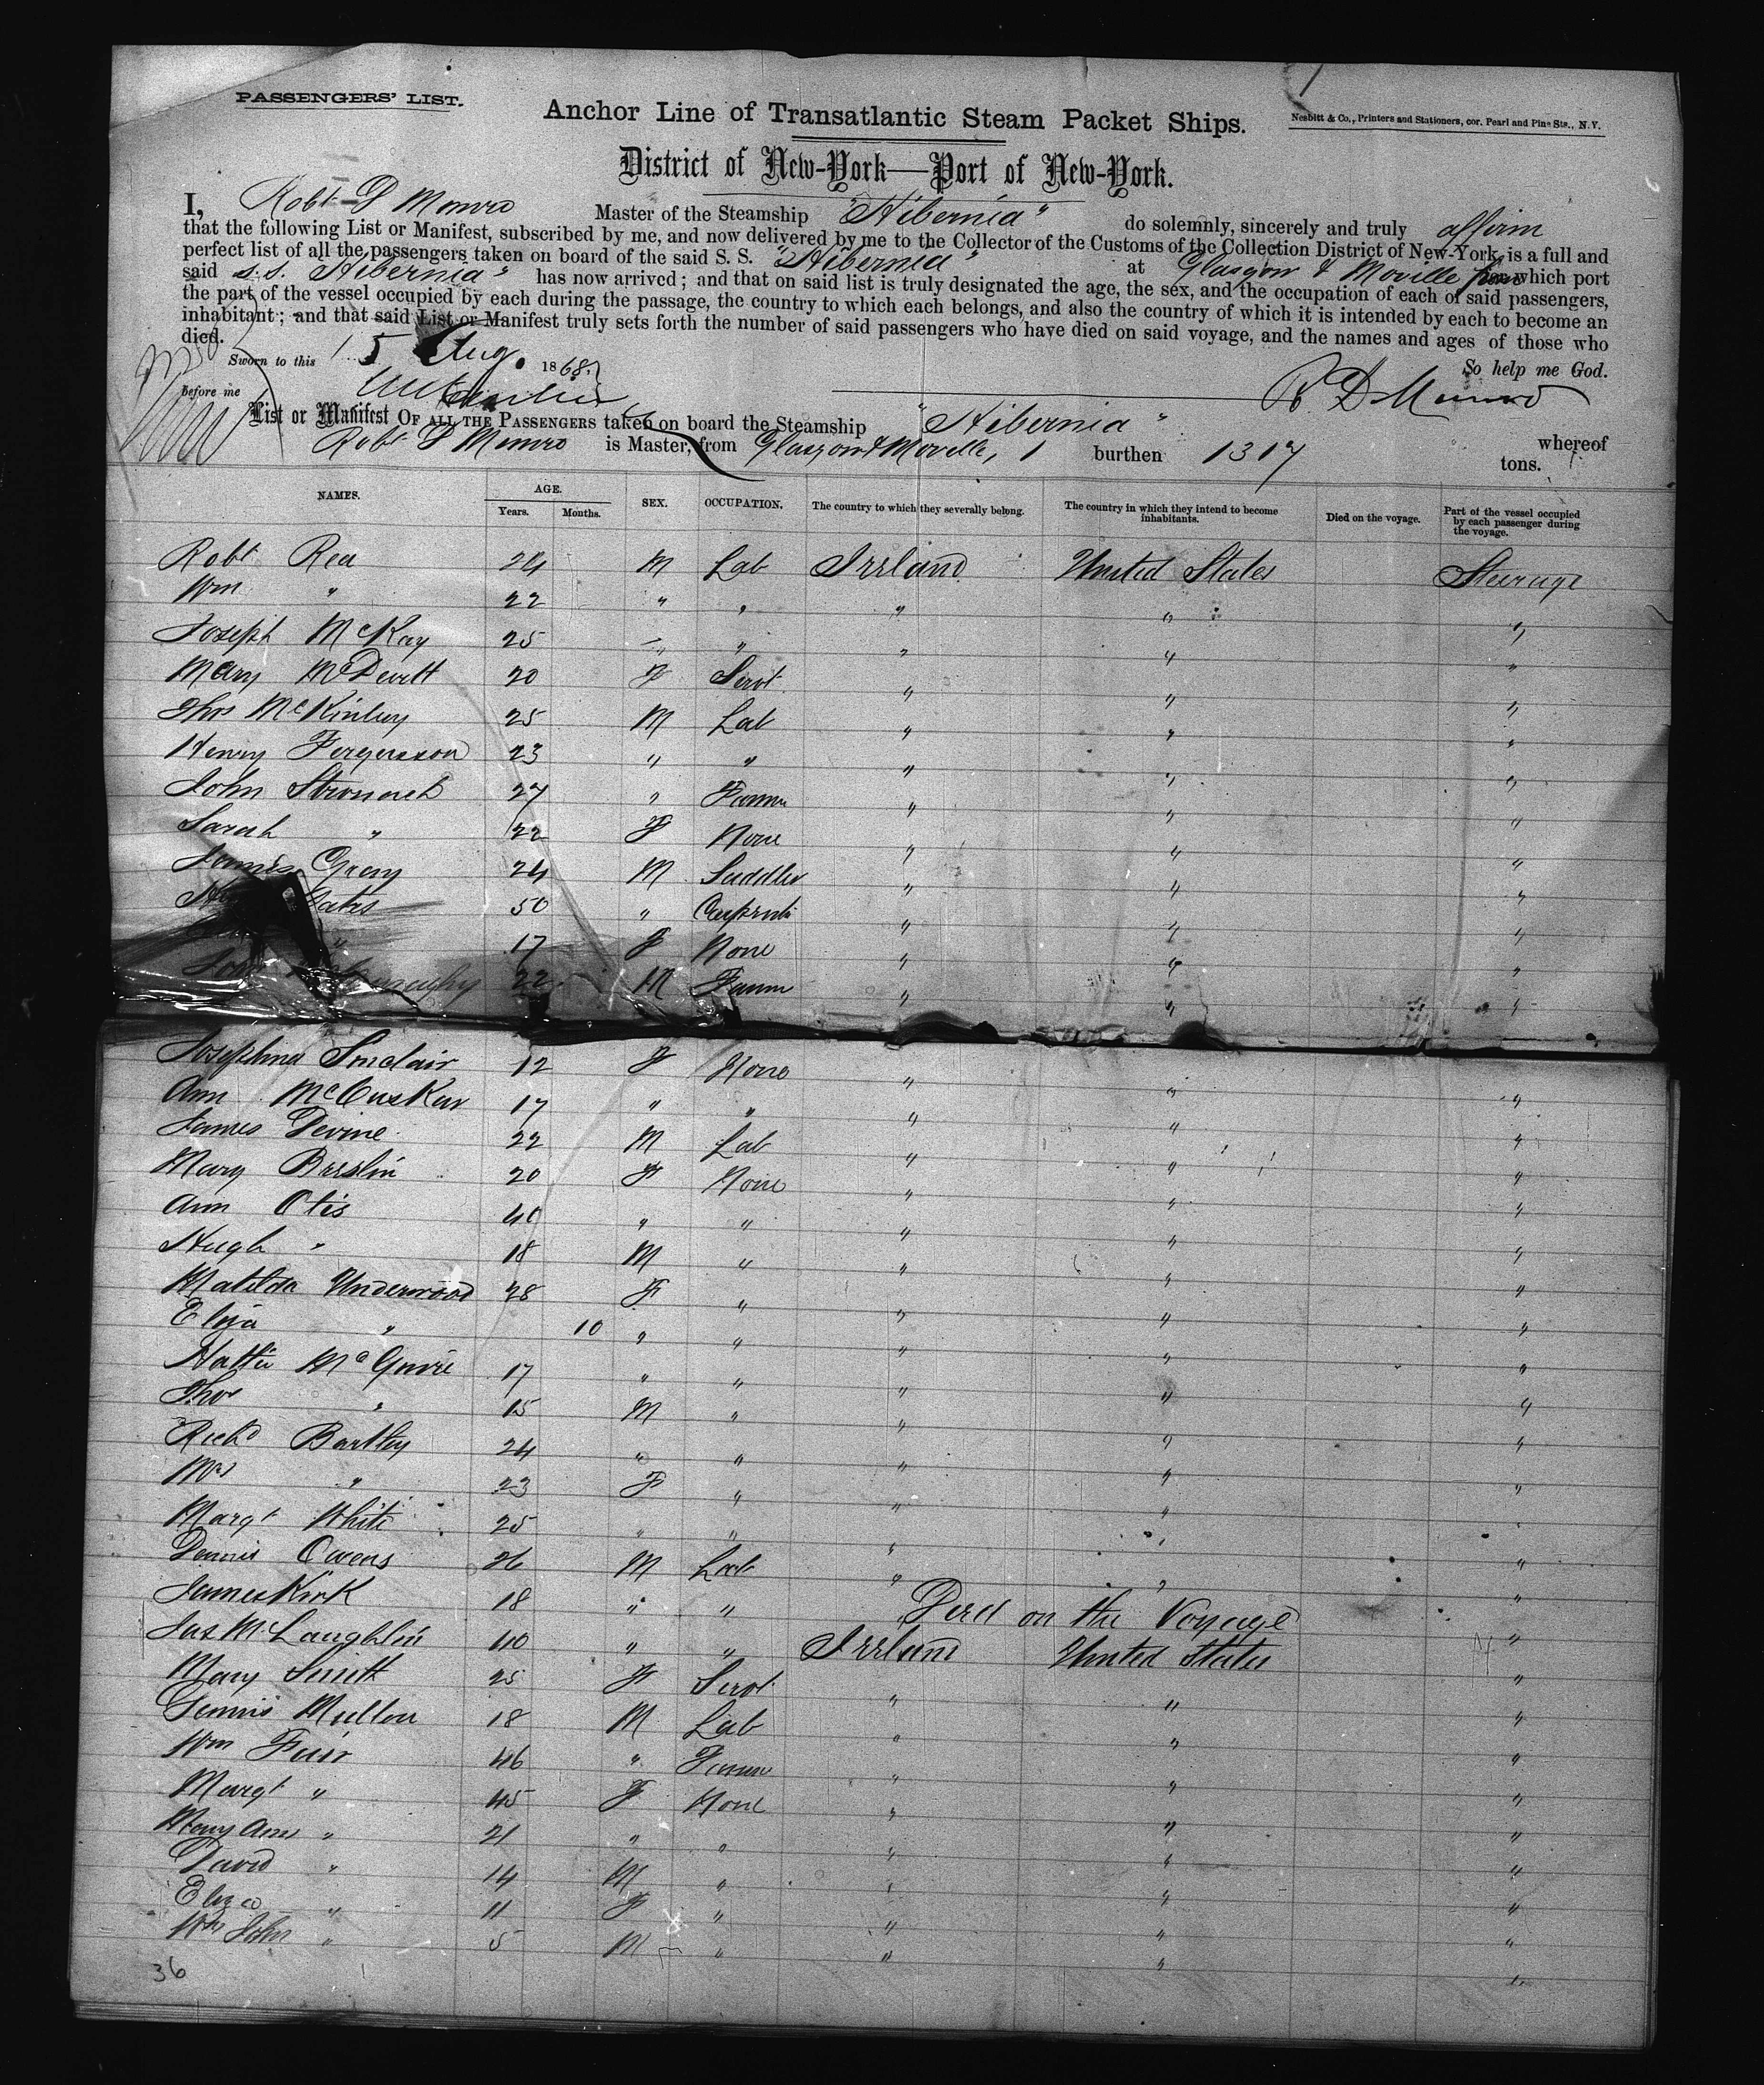 PASSENGERS' LIST.
Anchor Line of Transatlantic Steam Packet Ships.
Nesbitt & Co., Printers and Stationers, cor. Pearl and Pine Sts., N.Y.
District of New-York—Port of New-York.
I, Robt D Munro Master of the Steamship "Hibernia" do solemnly, sincerely and truly affirm
that the following List or Manifest, subscribed by me, and now delivered by me to the Collector of the Customs of the Collection District of New-York, is a full and
perfect list of all the passengers taken on board of the said S. S. "Hibernia" at Glasgow & Moville from which port
said S.S. Hibernia" has now arrived; and that on said list is truly designated the age, the sex, and the occupation of each of said passengers,
the part of the vessel occupied by each during the passage, the country to which each belongs, and also the country of which it is intended by each to become an
inhabitant; and that said List or Manifest truly sets forth the number of said passengers who have died on said voyage, and the names and ages of those who
died.
So help me God.
Sworn to this 15 Aug. 1868
before me
R D Munro
List or Manifest OF ALL THE PASSENGERS taken on board the Steamship "Hibernia" whereof
Robt D Munro is Master, from Glasgow & Moville, burthen 1317 tons.
NAMES. AGE. Years. Months. SEX. OCCUPATION. The country to which they severally belong. The country in which they intend to become inhabitants. Died on the voyage. Part of the vessel occupied by each passenger during the voyage.
Robt Rea 24 M Lab Ireland United States Steerage
Wm " 22 " " " " "
Joseph McKay 25 " " " " "
Mary McDevitt 20 F Servt " " "
Thos McKinley 25 M Lab " " "
Henry Fergusson 23 " " " " "
John Stronach 27 " Farmr " " "
Sarah " 22 F None " " "
James Gray 24 M Saddler " " "
50 " " " "
" 17 F None " " "
22 M Farmr " " "
Josephina Sinclair 12 F None " " "
Ann McCusker 17 " " " " "
James Devine 22 M Lab " " "
Mary Breslin 20 F None " " "
Ann Otis 40 " " " " "
Hugh " 18 M " " " "
Matilda Underwood 28 F " " " "
Eliza " 10 " " " " "
Hattie McGuire 17 " " " " "
Thos " 15 M " " " "
Richd Bartley 24 " " " " "
Mrs " 23 F " " " "
Margt White 25 " " " " "
Dennis Owens 26 M Lab " " "
James Kirk 18 " " Died on the Voyage "
Jas McLaughlin 40 " " Ireland United States "
Mary Smith 25 F Servt " " "
Dennis Mullon 18 M Lab " " "
Wm Fair 46 " Farmr " " "
Margt " 45 F None " " "
Mary Ann " 21 " " " " "
David " 14 M " " " "
Eliza " 11 F " " " "
Wm John " 5 M " " " "
36